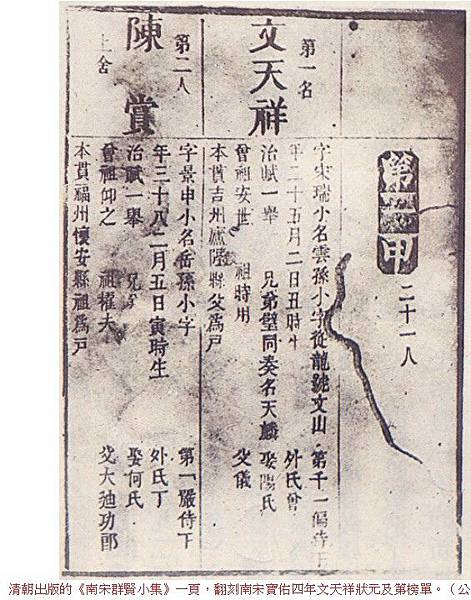 第甲 二十一人
第一名
文天祥
字宋瑞小名雲孫小字從龍號文山 第千一偏侍下
年二十五月二日丑時生 外氏曾
治賦一舉 兄弟璧同奏名天麟 娶陽氏
曾祖安世 祖時用 父儀
本貫吉州廬陵縣父爲戶
第二人
陳賞
上舍
字景申小名岳孫小字 第一嚴侍下
年三十八二月五日寅時生 外氏丁
治賦一舉 兄 娶何氏
曾祖仰之 祖權夫 父大廸功郎
本貫福州懷安縣祖爲戶
清朝出版的《南宋群賢小集》一頁，翻刻南宋寶佑四年文天祥狀元及第榜單。（公